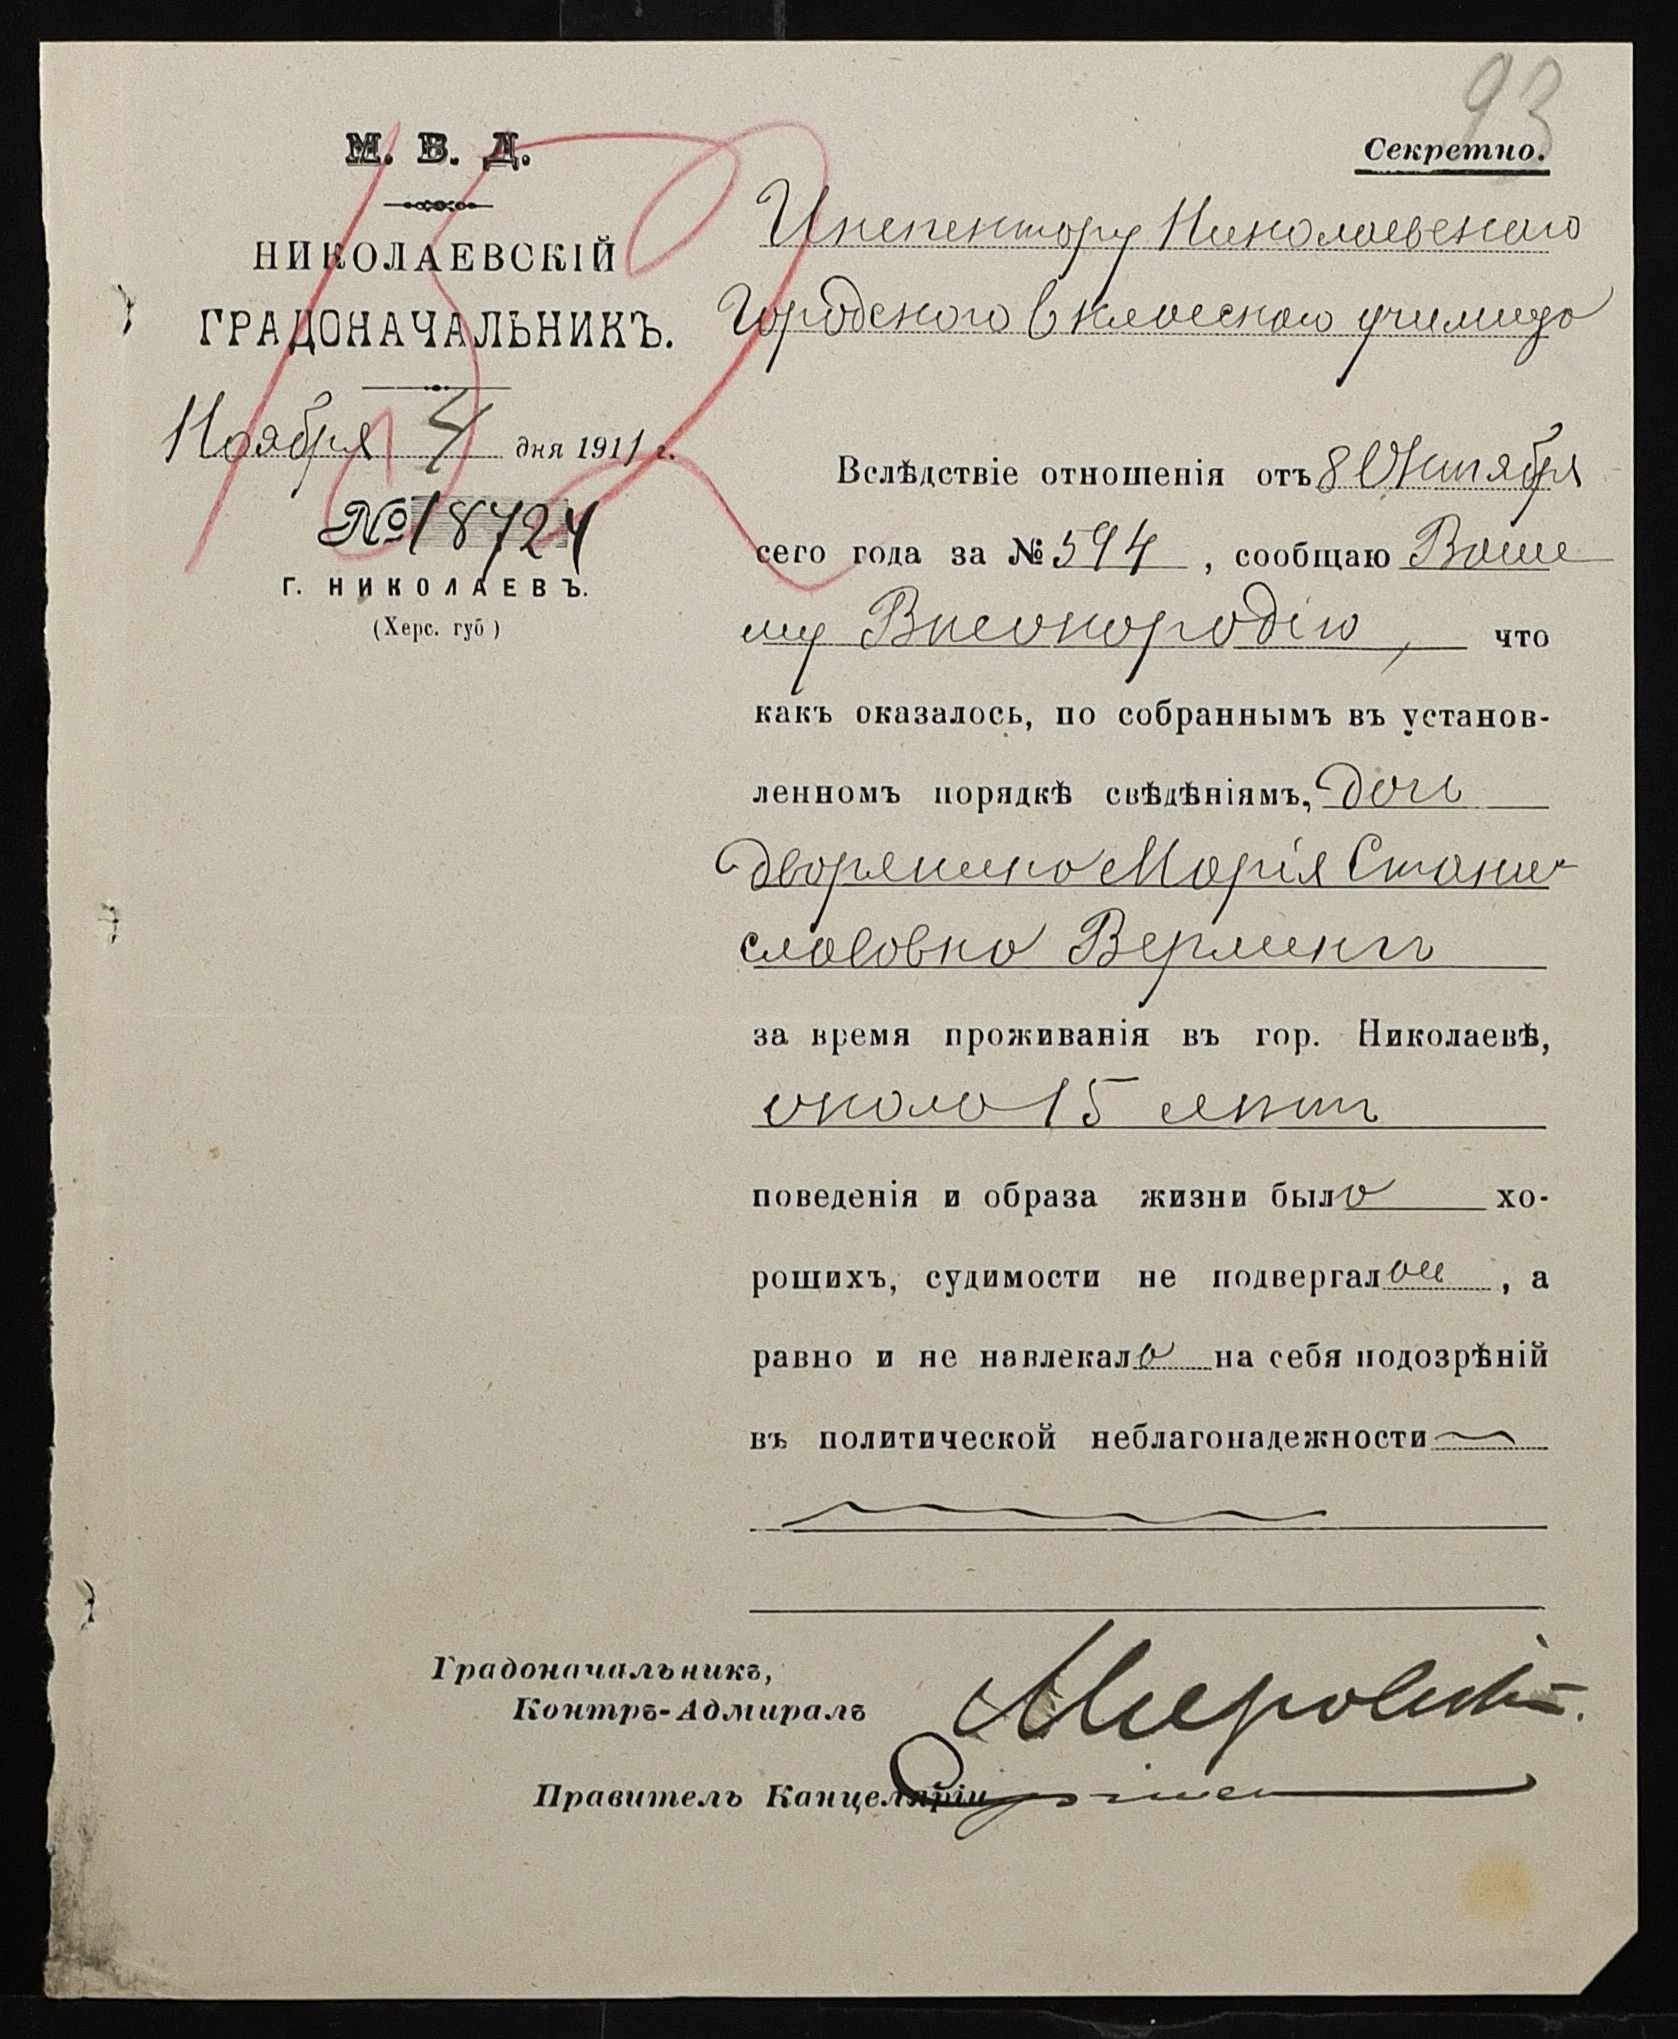 93
М. В. Д.
Секретно.
НИКОЛАЕВСКІЙ
ГРАДОНАЧАЛЬНИКЪ.
Ноября 4 дня 1911 г.
№ 18724
Г. НИКОЛАЕВЪ.
(Херс. губ)
Инспектору Николаевскаго
Городского 6 класснаго училища
Вслѣдствіе отношенія отъ 8 Октября
сего года за № 594, сообщаю Ваше
му Высокородію, что
какъ оказалось, по собраннымъ въ установ-
ленномъ порядкѣ свѣдѣніямъ, дочь
дворянина Марія Стани-
славовна
за время проживанія въ гор. Николаевѣ,
около 15 лѣтъ
поведенія и образа жизни была хо-
рошихъ, судимости не подвергалась, а
равно и не навлекала на себя подозрѣній
въ политической неблагонадежности
Градоначальникъ,
Контръ-Адмиралъ
Правитель Канцеляріи